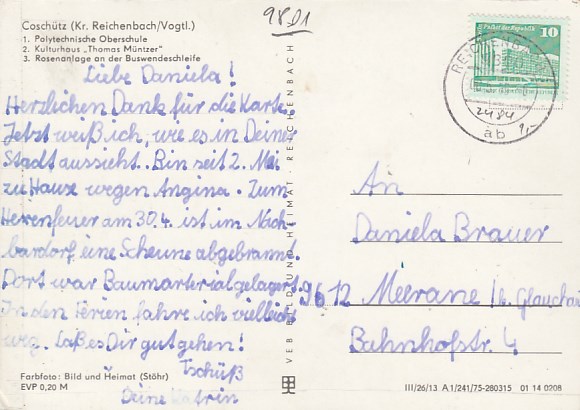 98.01
Coschütz (Kr. Reichenbach/Vogtl.)
1. Polytechnische Oberschule
2. Kulturhaus „Thomas Müntzer"
3. Rosenanlage an der Buswendeschleife
Liebe Daniela!
Herzlichen Dank für die Karte.
Jetzt weiß ich, wie es in Deiner
Stadt aussieht. Bin seit 2. Mai
zu Hause wegen Angina. Zum
Hexenfeuer am 30.4. ist im Nach-
bardorf eine Scheune abgebrannt.
Dort war Baumarterial gelagert.
In den Ferien fahre ich vielleicht
weg. Laß es Dir gut gehen!
Tschüß
Deine Katrin
Farbfoto: Bild und Heimat (Stöhr)
EVP 0,20 M
VEB BILD UND HEIMAT REICHENBACH
Palast der Republik 10
REICHENBA
2484
äb 1,-
An
Daniela Brauer
9612 Meerane /b. Glauchau
Bahnhofstr. 4
III/26/13 A 1/241/75-280315 01 14 0208